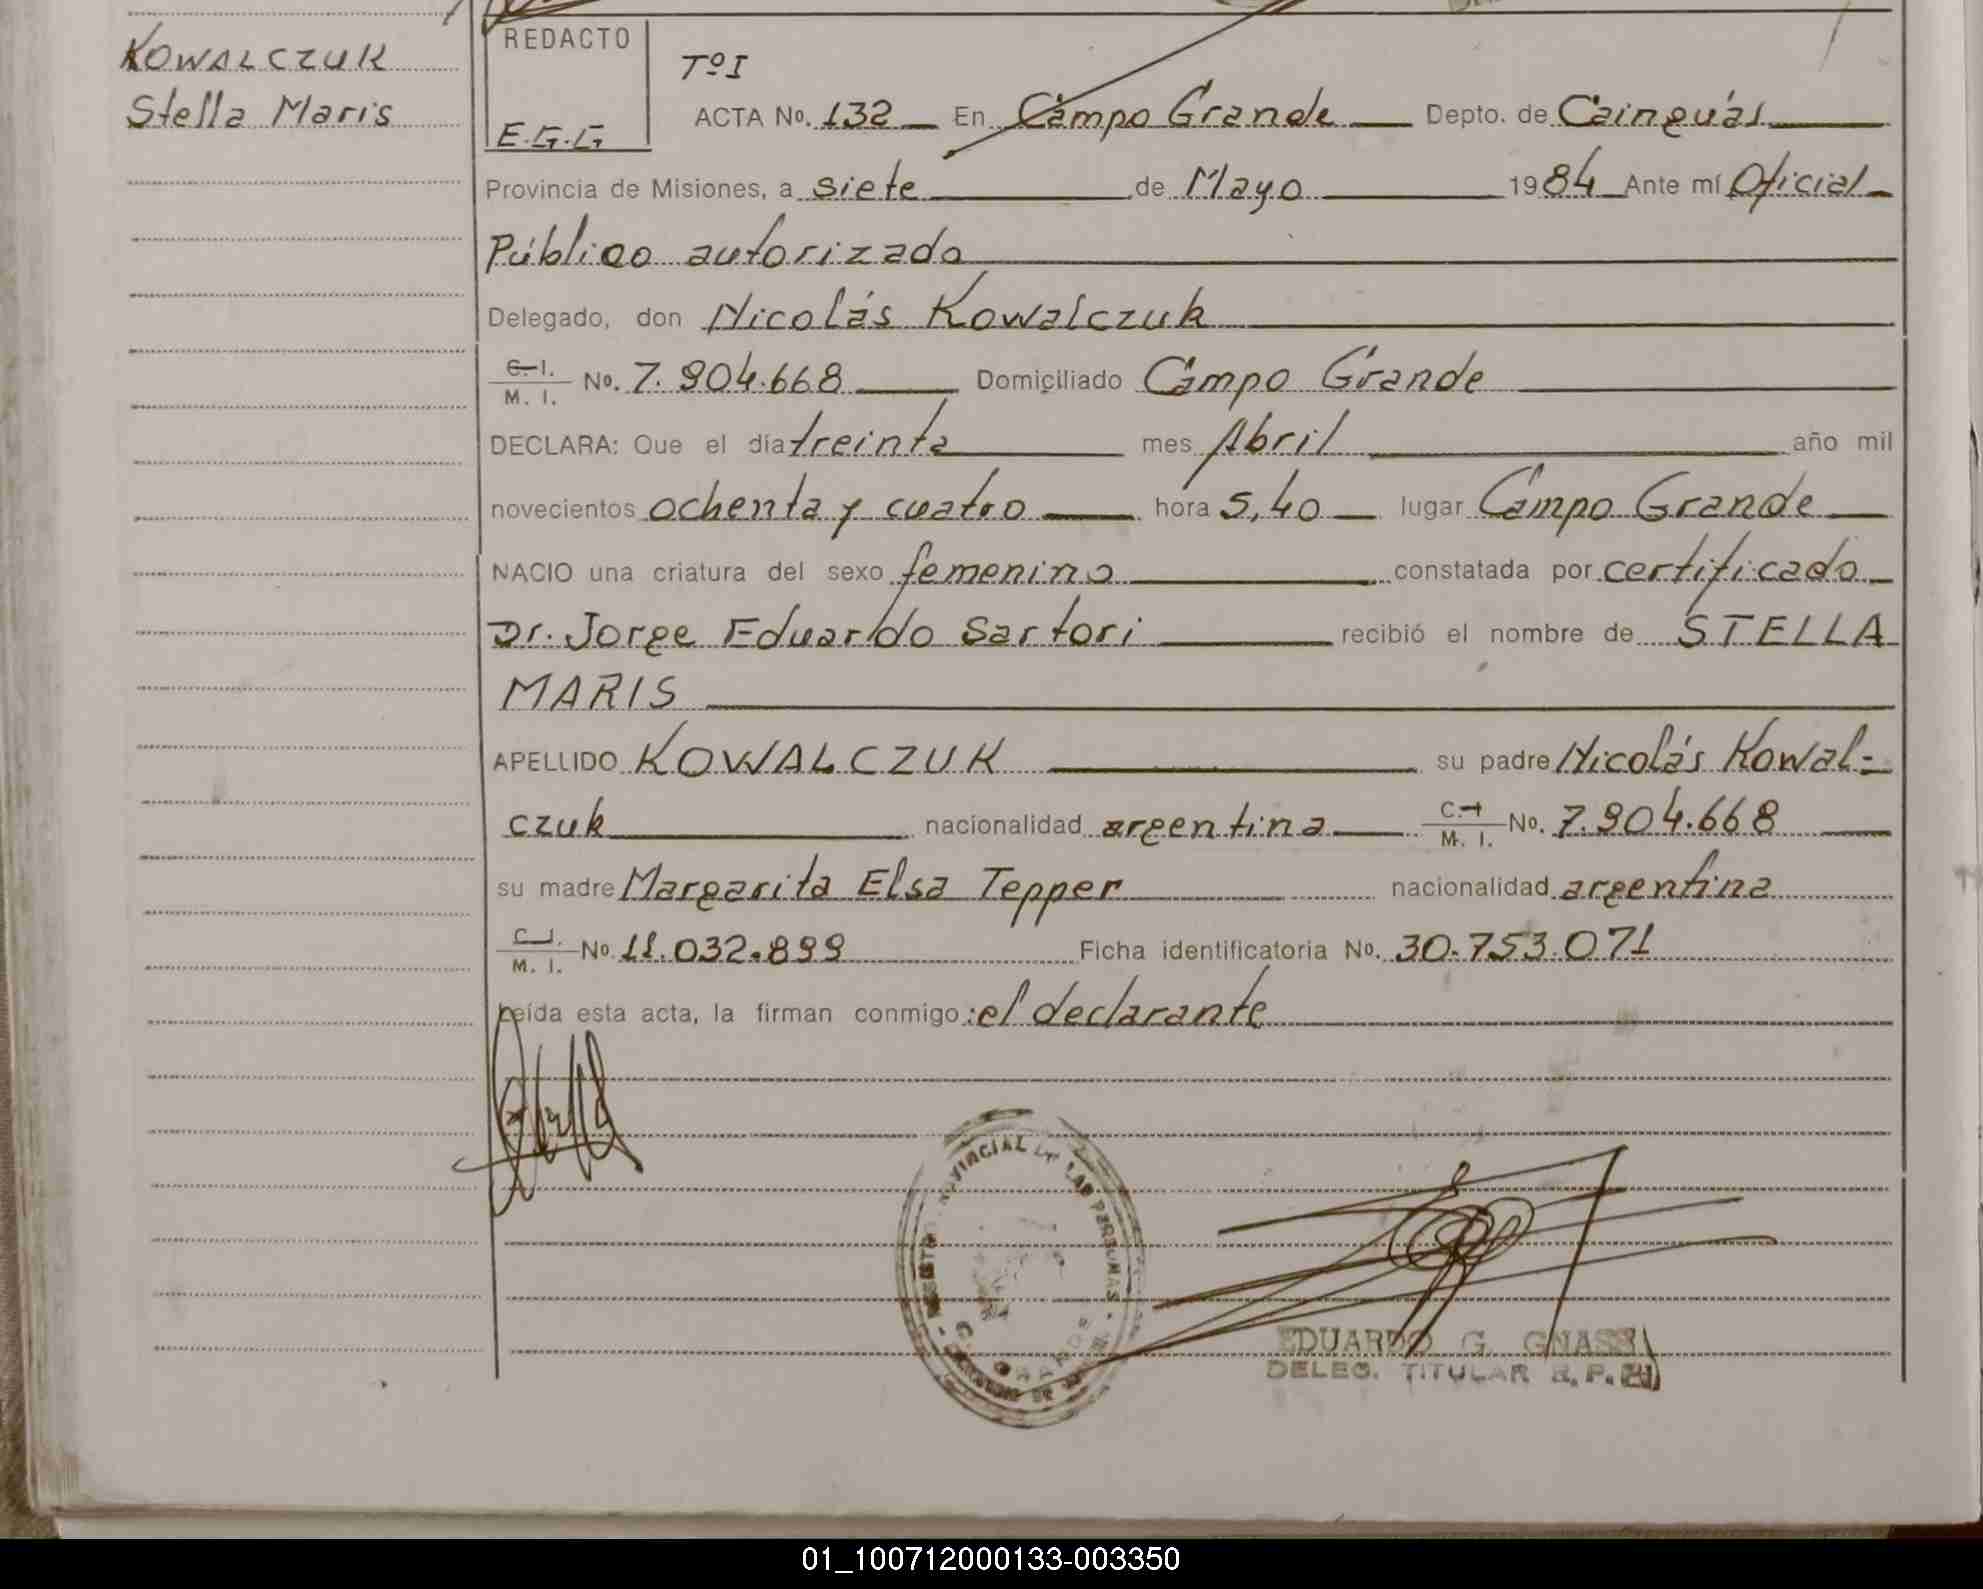 KOWALCZUK
Stella Maris
REDACTO
E.G.G
TºI
ACTA No. 132 En Campo Grande Depto. de Cainguás
Provincia de Misiones, a siete de Mayo 1984 Ante mí Oficial
Público autorizado
Delegado, don Nicolás Kowalczuk
C. I. M. I. No. 7.904.668 Domiciliado Campo Grande
DECLARA: Que el día treinta mes Abril año mil
novecientos ochenta y cuatro hora 5,40 lugar Campo Grande
NACIO una criatura del sexo femenino constatada por certificado
Dr. Jorge Eduardo Sartori recibió el nombre de STELLA
MARIS
APELLIDO KOWALCZUK su padre Nicolás Kowal-
czuk nacionalidad argentina C. I. M. I. No. 7.904.668
su madre Margarita Elsa Tepper nacionalidad argentina
C. I. M. I. No. 11.032.899 Ficha identificatoria No. 30.753.071
Leída esta acta, la firman conmigo: el declarante
PROVINCIAL DE LAS PERSONAS
EDUARDO G. GNASS
DELEG. TITULAR R. P.
01_100712000133-003350